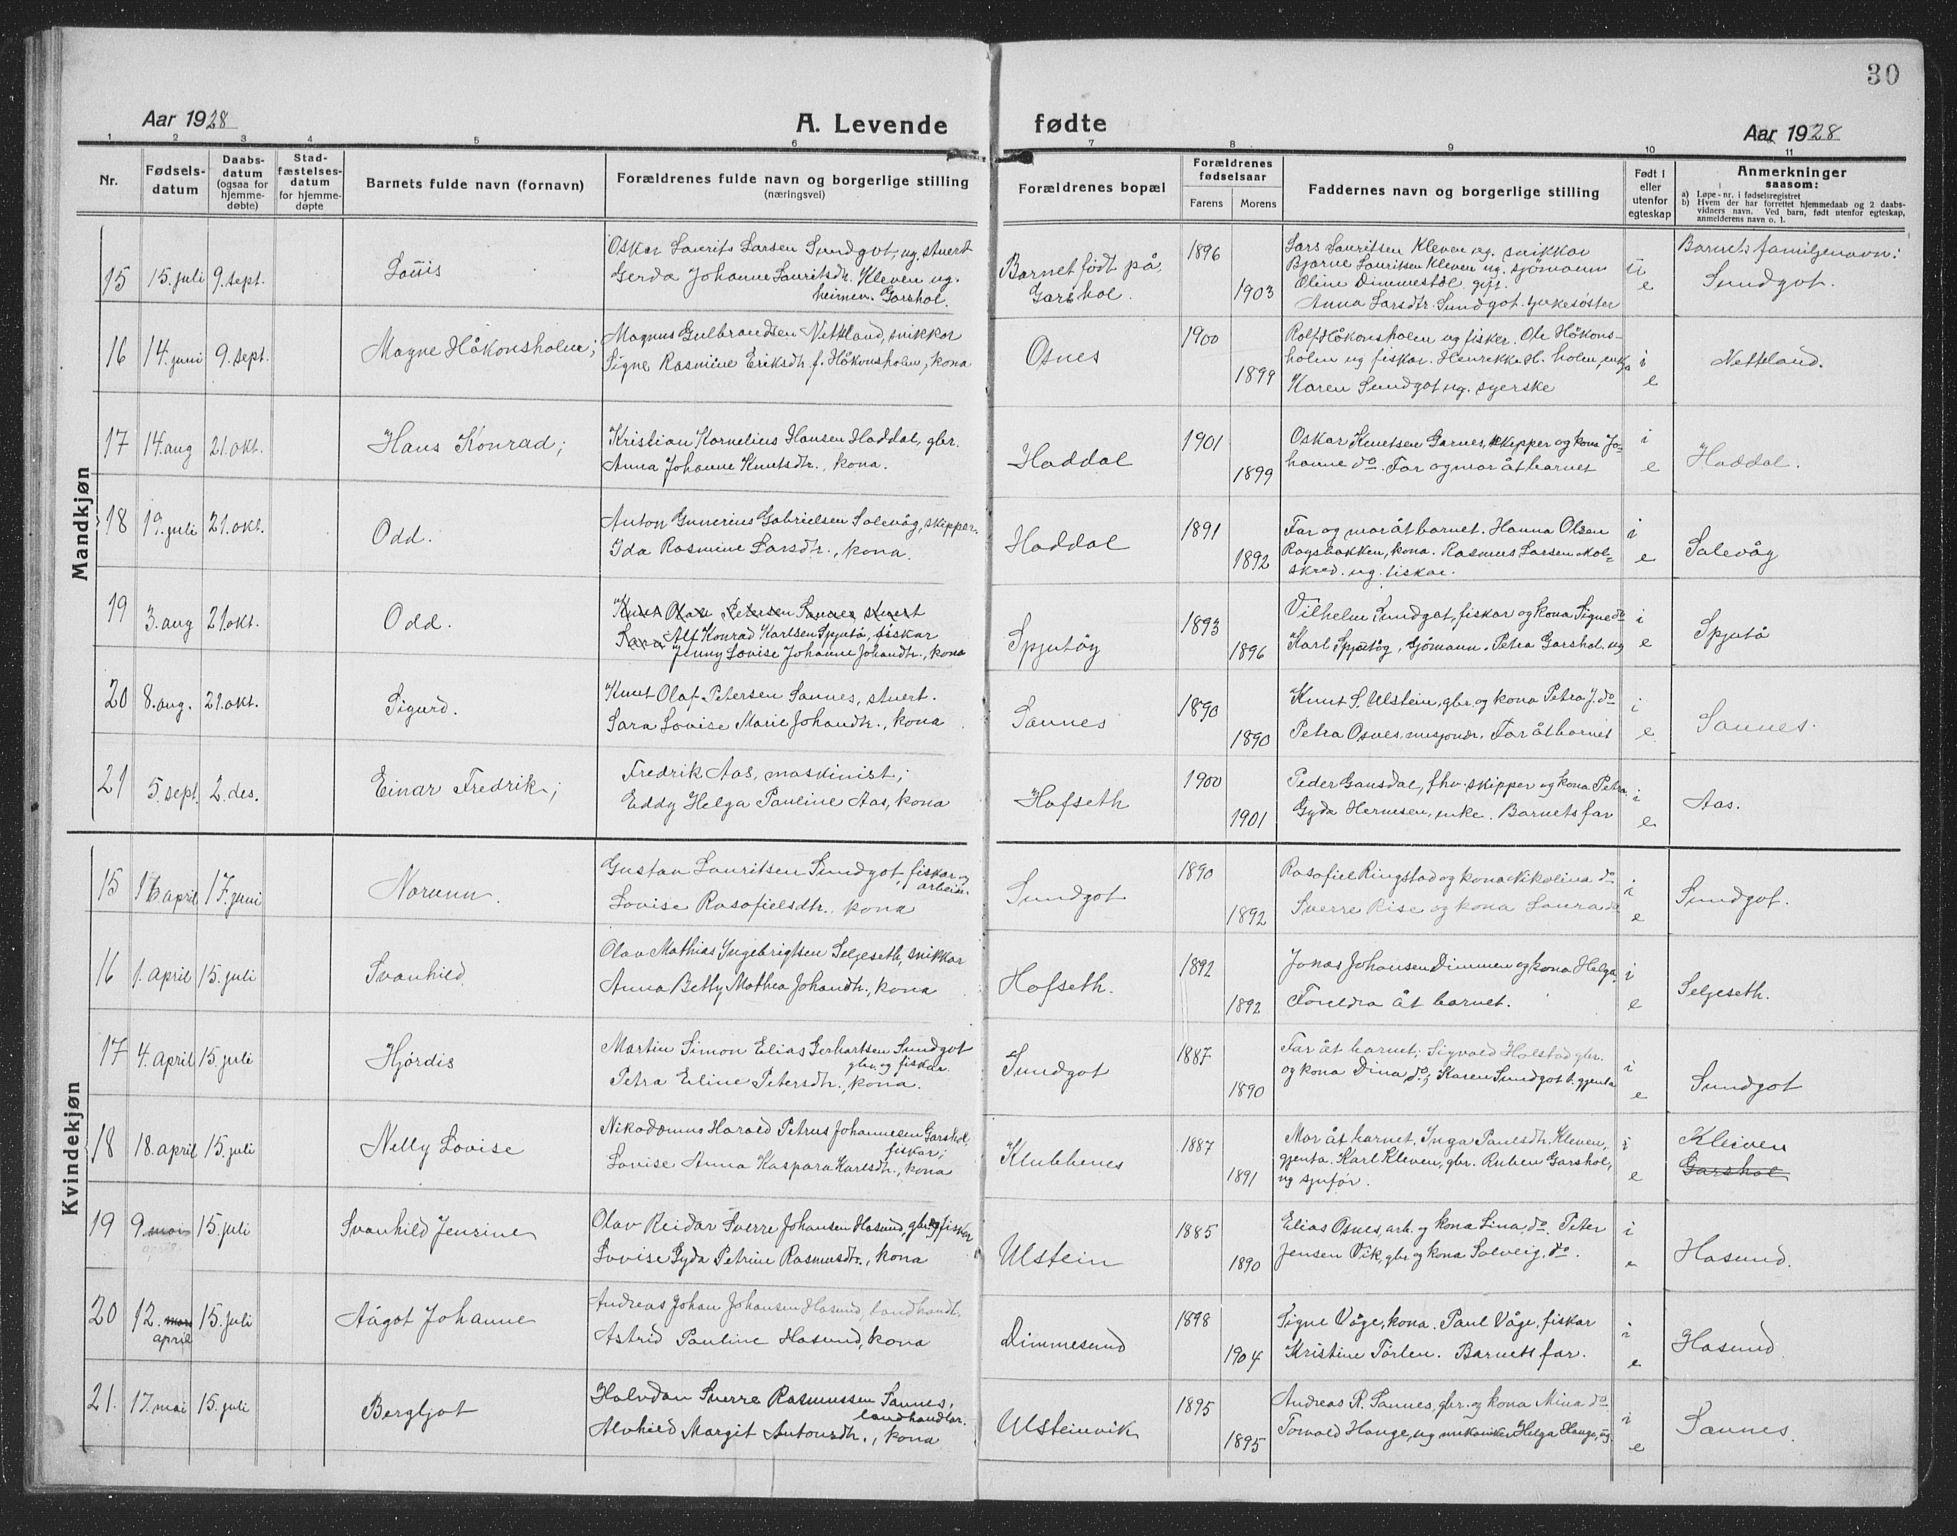 30
Aar 1928
A. Levende fødte
Aar 1928
1 2 3 4 5 6 7 8 9 10 11
Nr.
Fødsels-
datum
Daabs-
datum
(ogsaa for
hjemme-
døbte)
Stad-
fæstelses-
datum
for hjemme-
døpte
Barnets fulde navn (fornavn)
Forældrenes fulde navn og borgerlige stilling
(næringsvei)
Forældrenes bopæl
Forældrenes
fødselsaar
Farens Morens
Faddernes navn og borgerlige stilling
Født i
eller
utenfor
egteskap
Anmerkninger
saasom:
a) Løpe-nr. i fødselsregistret
b) Hvem der har forrettet hjemmedaab og 2 daabs-
vidners navn. Ved barn, født utenfor egteskap,
anmelderens navn o. l.
Mandkjøn
15 15. juli 9. sept. Louis
Oskar Laurits Larsen Sundgot, ug. stuert
Gerda Johanne Lauritsdr. Kleven ug.
heimev. Garshol.
Barnet født på
Garshol.
1896
1903
Lars Lauritsen Kleven ug. snikkar
Bjarne Lauritsen Kleven ug. sjømann
Oline Dimmestøl gift.
Anna Larsdtr. Sundgot. sjukesøster
u
e
Barnets familjenavn:
Sundgot.
16 14. juni 9. sept. Magne Håkonsholm;
Magnus Gulbrandsen Nettland, snikkar
Signe Rasmine Eriksdt. f. Håkonsholm, kona
Osnes
1900
1899
Rolf Håkonsholen ug fisker. Ole Håkons-
holen ug fiskar. Henrikke H. holen, enkja
Karen Sundgot ug. syerske
i
e
Nettland.
17 14. aug 21. okt. Hans Konrad;
Kristian Kornelius Hansen Haddal, gbr.
Anna Johanne Knutsdtr., kona.
Haddal
1901
1899
Oskar Knutsen Garnes, skipper og kona Jo-
hanne do. Far og mor åt barnet
i
e
Haddal.
18 19. juli 21. okt. Odd.
Anton Gunerius Gabrielsen Salevåg, skipper
Ida Rasmine Larsdtr., kona.
Haddal
1891
1892
Far og mor åt barnet. Hanna Olsen
Rogsbakken, kona. Rasmus Larsen Mol-
skred. ug. fiskar.
i
e
Salevåg
19 3. aug 21. okt. Odd.
Knut Olav Petersen Sannes stuert
Sara Alf Konrad Karlsen Spjutø, fiskar
Jenny Lovise Johanne Johandtr., kona
Spjutøy
1893
1896
Vilhelm Sundgot, fiskar og kona Signe do
Karl Spjutøg, Sjømann. Petra Garshol. ug
i
e
Spjutø
20 8. aug. 21. okt. Sigurd.
Knut Olaf Petersen Sannes, stuert.
Sara Lovise Marie Johandtr., kona
Sannes
1890
1890
Knut S. Ulstein, gbr. og kona Petra J. do
Petra Osnes, misjonær. Far åt barnet
i
e
Sannes.
21 5. sept. 2. des. Einar Fredrik;
Fredrik Aas, maskinist;
Eddy Helga Pauline Aas, kona
Hofseth
1900
1901
Peder Gansdal, fhv. skipper og kona Petra
Gyda Hermesen, enke. Barnets far
i
e
Aas.
Kvindekjøn
15 16 april 17. juni Norunn.
Gustav Lauritsen Sundgot, fiskar og
arbeidar.
Lovise Rasofielsdtr. kona
Sundgot
1890
1892
Rasofiel Ringstad og kona Nikolina do
Sverre Rise og kona Laura do
i
e
Sundgot.
16 1. april 15. juli Svanhild.
Olav Mathias Ingebrigtsen Seljeseth, snikkar
Anna Betty Mathea Johandtr., kona
Hofseth.
1892
1892
Jonas Johansen Dimmen og kona Helga.
Foreldra åt barnet.
i
e
Seljeseth.
17 4. april 15. juli Hjørdis
Martin Simon Elias Gerhartsen Sundgot
gbr. og fiskar.
Petra Eline Petersdtr., kona.
Sundgot
1887
1890
Far åt barnet; Sigvald Holstad gbr.
og kona Dina, do; Karen Sundgot t. gjenta
i
e
Sundgot
18 18. april 15. juli Nelly Lovise
Nikodemus Harald Petrus Johannesen Garshol
fiskar;
Lovise Anna Kaspara Karlsdtr., kona
Klubbenes
1887
1891
Mor åt barnet, Inga Paulsdtr. Kleven,
gjenta. Karl Kleven, gbr. Ruben Garshol,
ug sjufør.
i
e
Kleiven
Garshol
19 9. mai 15. juli Svanhild Jensine
april
Olav Reidar Sverre Johansen Hasund, gbr. og fisker
Lovise Gyda Petrine Rasmusdtr., kona
Ulstein
1885
1890
Elias Osnes, arb. og kona Lina, do. Peter
Jensen Vik, gbr. og kona Solveig, do.
i
e
Hasund.
20 12. mars 15. juli Aågot Johanne
april
Andreas Johan Johansen Hasund, landhandl.
Astrid Pauline Hasund, kona
Dimmesund
1898
1904
Signe Våge, kona. Paul Våge, fiskar
Kristine Törlen. Barnets far.
i
e
Hasund.
21. 17. mai 15. juli Bergljot
Halvdan Sverre Rasmussen Sannes,
landhandlar.
Alvhild Margit Antonsdtr., kona
Ulsteinvik
1895
1895
Andreas R. Sannes, gbr. og kona Mina do.
Torvald Hauge, ug mekaniker Helga Hauge, ug
i
e
Sannes.